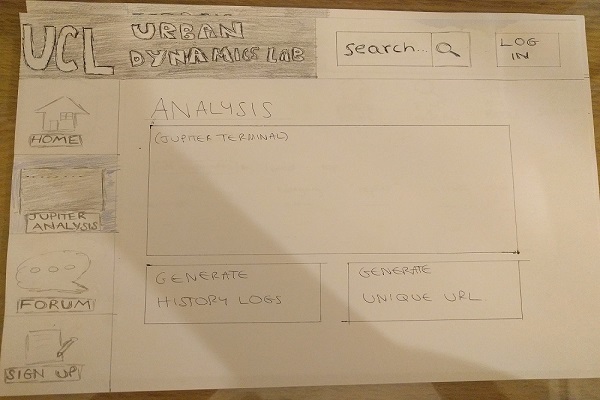 UCL
URBAN
DYNAMICS LAB
search...
LOG
IN
HOME
JUPITER
ANALYSIS
FORUM
SIGN UP
ANALYSIS
(JUPITER TERMINAL)
GENERATE
HISTORY LOGS
GENERATE
UNIQUE URL